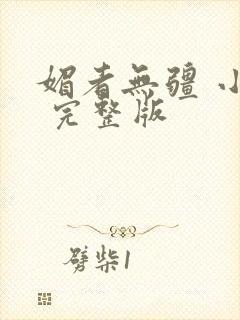 媚者無疆 小
完整版
劈柴1